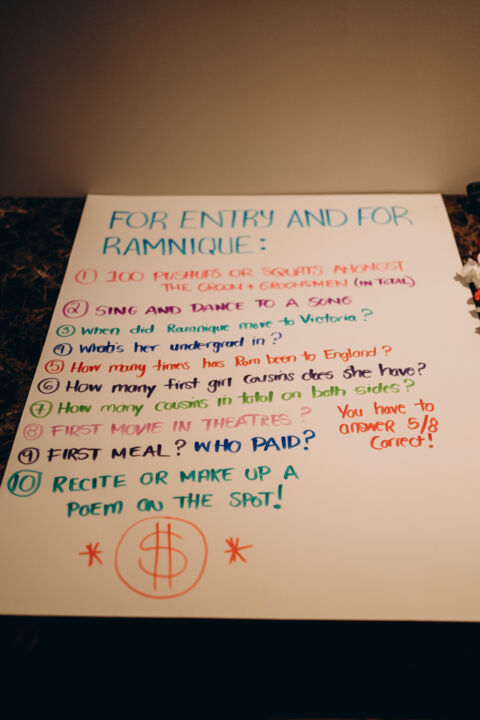 FOR ENTRY AND FOR
RAMNIQUE:
① 100 PUSHUPS OR SQUATS AMONGST
THE GROOM + GROOMSMEN (IN TOTAL)
② SING AND DANCE TO A SONG
③ When did Ramnique move to Victoria?
④ What's her undergrad in?
⑤ How many times has Ram been to England?
⑥ How many first girl cousins does she have?
⑦ How many cousins in total on both sides?
⑧ FIRST MOVIE IN THEATRES?
⑨ FIRST MEAL? WHO PAID?
You have to
answer 5/8
Correct!
⑩ RECITE OR MAKE UP A
POEM ON THE SPOT!
* $ *